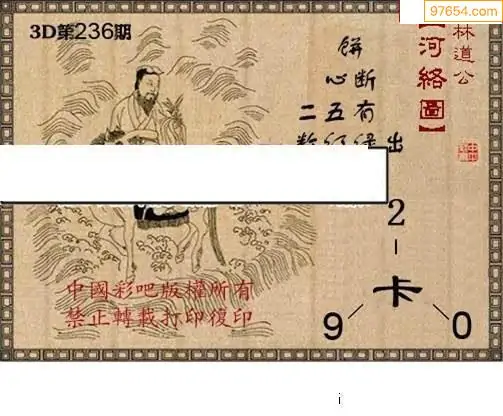 97654.com
3D第236期
林道公
【河絡圖】
出
餅
断有
心五
二
2
卡
9 0
中國彩吧版權所有
禁止轉載打印復印
i